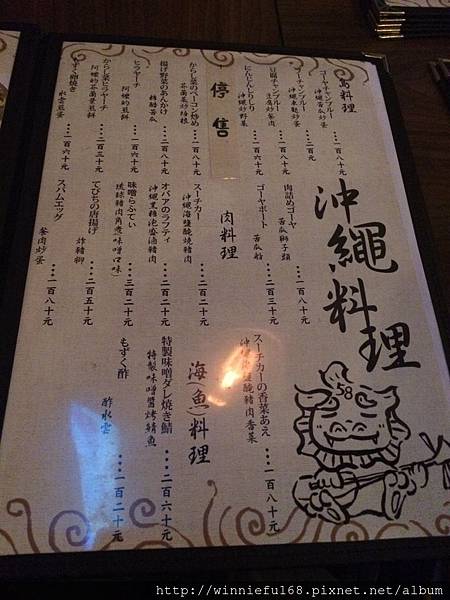 沖繩料理
58
島料理
ゴーヤチャンプルー
沖繩苦瓜炒蛋
...一百八十元
沖繩麩炒蛋
...二百元
豆腐チャンプルー
豆腐炒麥肉
...一百八十元
にんじんしりしり
沖繩炒野菜
...一百六十元
停售
からし菜のベーコン炒め
芥菜炒培根
...一百八十元
揚げ野菜のあんかけ
...一百八十元
ヒラヤーチ
阿嬤的煎餅
...一百六十元
からし菜ヒラヤーチ
阿嬤的芥菜煎餅
...二百三十元
もずく卵焼き
水雲煎蛋
...一百六十元
肉詰めゴーヤ
苦瓜獅子頭
...一百八十元
ゴーヤボート
苦瓜船
...二百三十元
肉料理
スーチカー
沖繩海鹽醃燒豬肉
...二百二十元
オバアのラフティ
沖繩黑糖泡盛滷豬肉
...二百二十元
味噌らふてぃ
琉球豬肉角煮(味噌口味)
...三百二十元
てびちの唐揚げ
炸豬腳
...二百五十元
スパムエッグ
餐肉炒蛋
...一百八十元
スーチカーの香菜あえ
沖繩海鹽醃豬肉香菜
...一百八十元
海(魚)料理
特製味噌ダレ焼き鯖
特製味噌醬烤鯖魚
...二百六十元
もずく酢
醋水雲
...一百二十元
http://winnieful68.pixnet.net/album